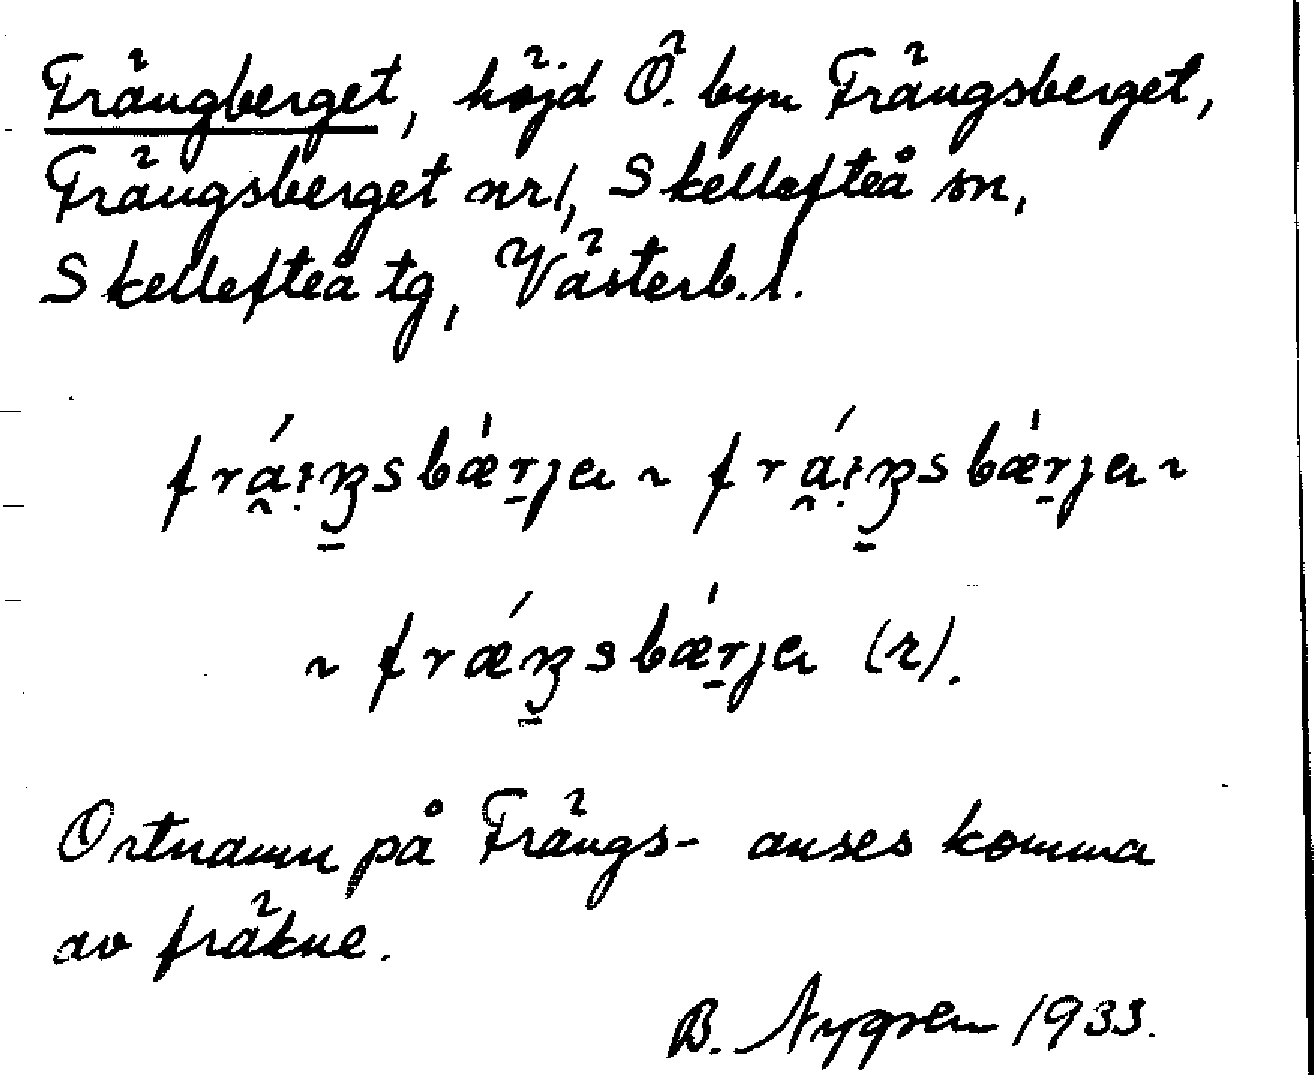 Frängberget, höjd Ö. byn Frängsberget,
Frängsberget nr 1, Skellefteå sn,
Skellefteå tg, Västerb. l.
frá̯i̤ŋsbæ̍r̠ja ~ frá̯i̤ŋsbæ̍r̠ja ~
~ frǽŋsbæ̍r̠ja (r).
Ortnamn på Frängs- anses komma
av fräkne.
B. Nygren 1933.